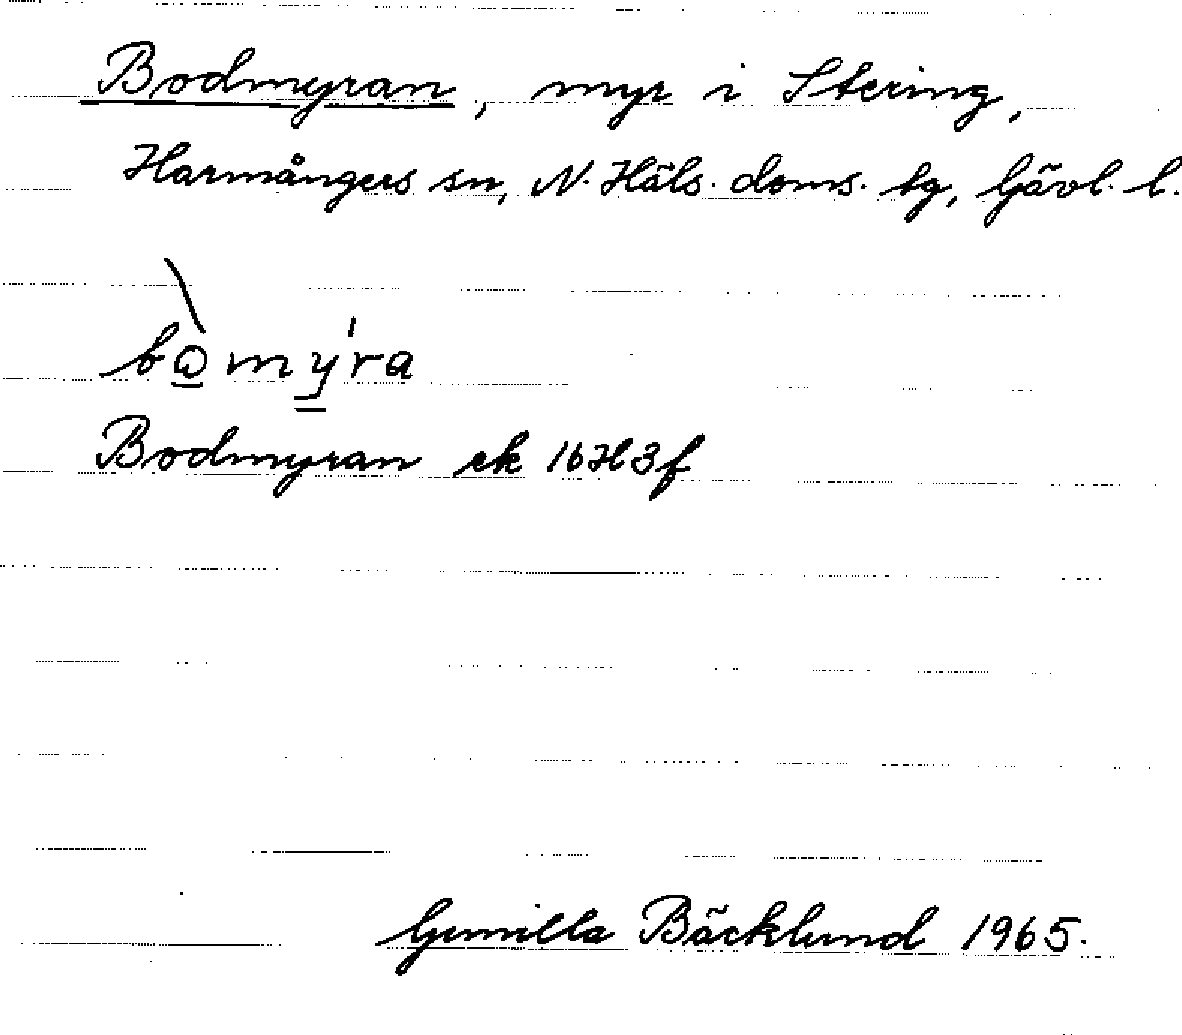 Bodmyran, myr i Stering,
Harmångers sn, N. Häls. doms. tg, Gävl. l.
bòmy̲ra
Bodmyran ek 16H3f
Gunilla Bäcklund 1965.